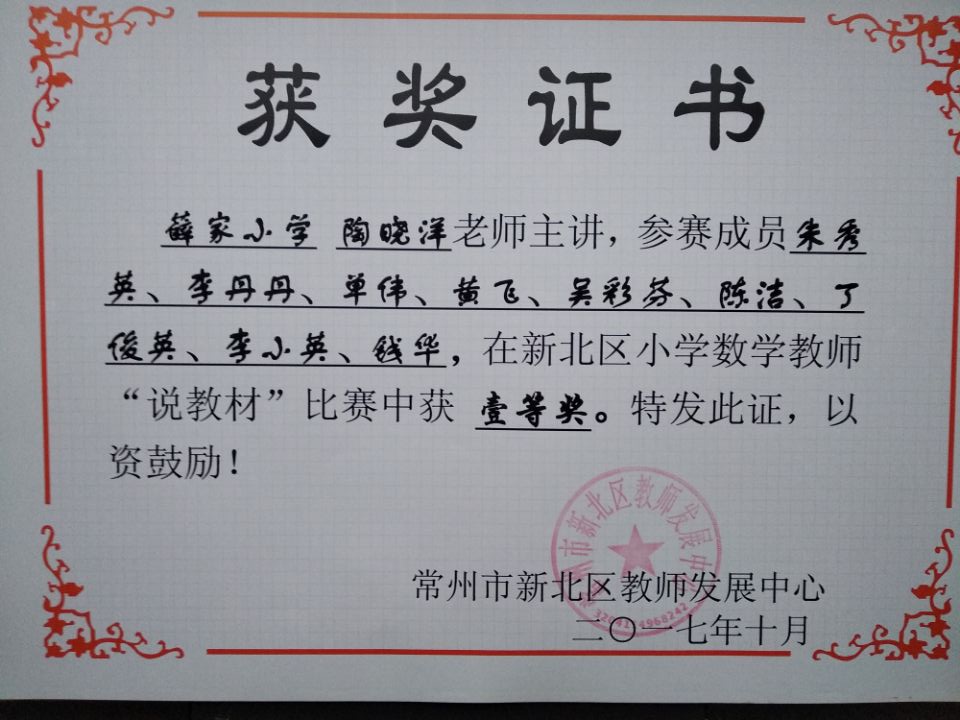 获奖证书
薛家小学 陶晓洋老师主讲，参赛成员朱秀
英、李丹丹、单伟、黄飞、吴彩芬、陈洁、丁
俊英、李小英、钱华，在新北区小学数学教师
“说教材”比赛中获 壹等奖。特发此证，以
资鼓励！
常州市新北区教师发展中心
常州市新北区教师发展中心
二〇一七年十月